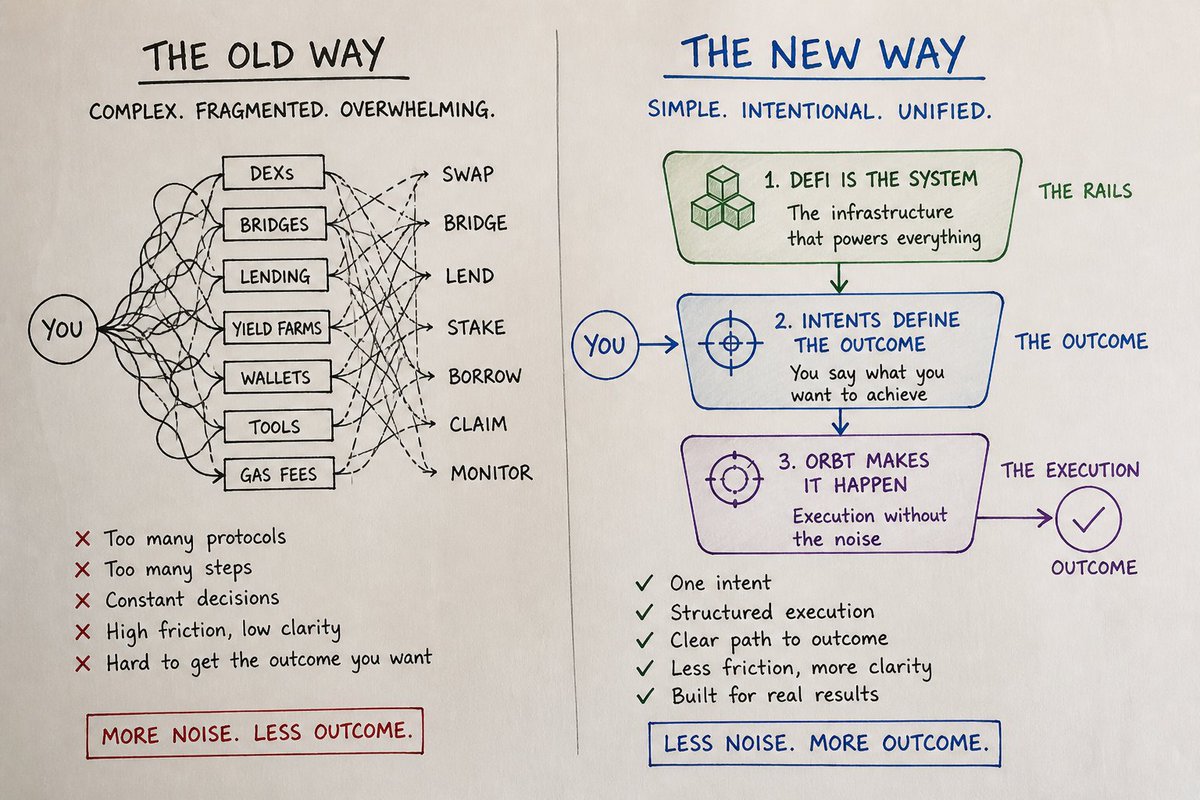 THE OLD WAY
COMPLEX. FRAGMENTED. OVERWHELMING.
YOU
DEXs
BRIDGES
LENDING
YIELD FARMS
WALLETS
TOOLS
GAS FEES
SWAP
BRIDGE
LEND
STAKE
BORROW
CLAIM
MONITOR
✗ Too many protocols
✗ Too many steps
✗ Constant decisions
✗ High friction, low clarity
✗ Hard to get the outcome you want
MORE NOISE. LESS OUTCOME.
THE NEW WAY
SIMPLE. INTENTIONAL. UNIFIED.
1. DEFI IS THE SYSTEM
The infrastructure
that powers everything
THE RAILS
YOU
2. INTENTS DEFINE
THE OUTCOME
You say what you
want to achieve
THE OUTCOME
3. ORBT MAKES
IT HAPPEN
Execution without
the noise
THE EXECUTION
OUTCOME
✓ One intent
✓ Structured execution
✓ Clear path to outcome
✓ Less friction, more clarity
✓ Built for real results
LESS NOISE. MORE OUTCOME.